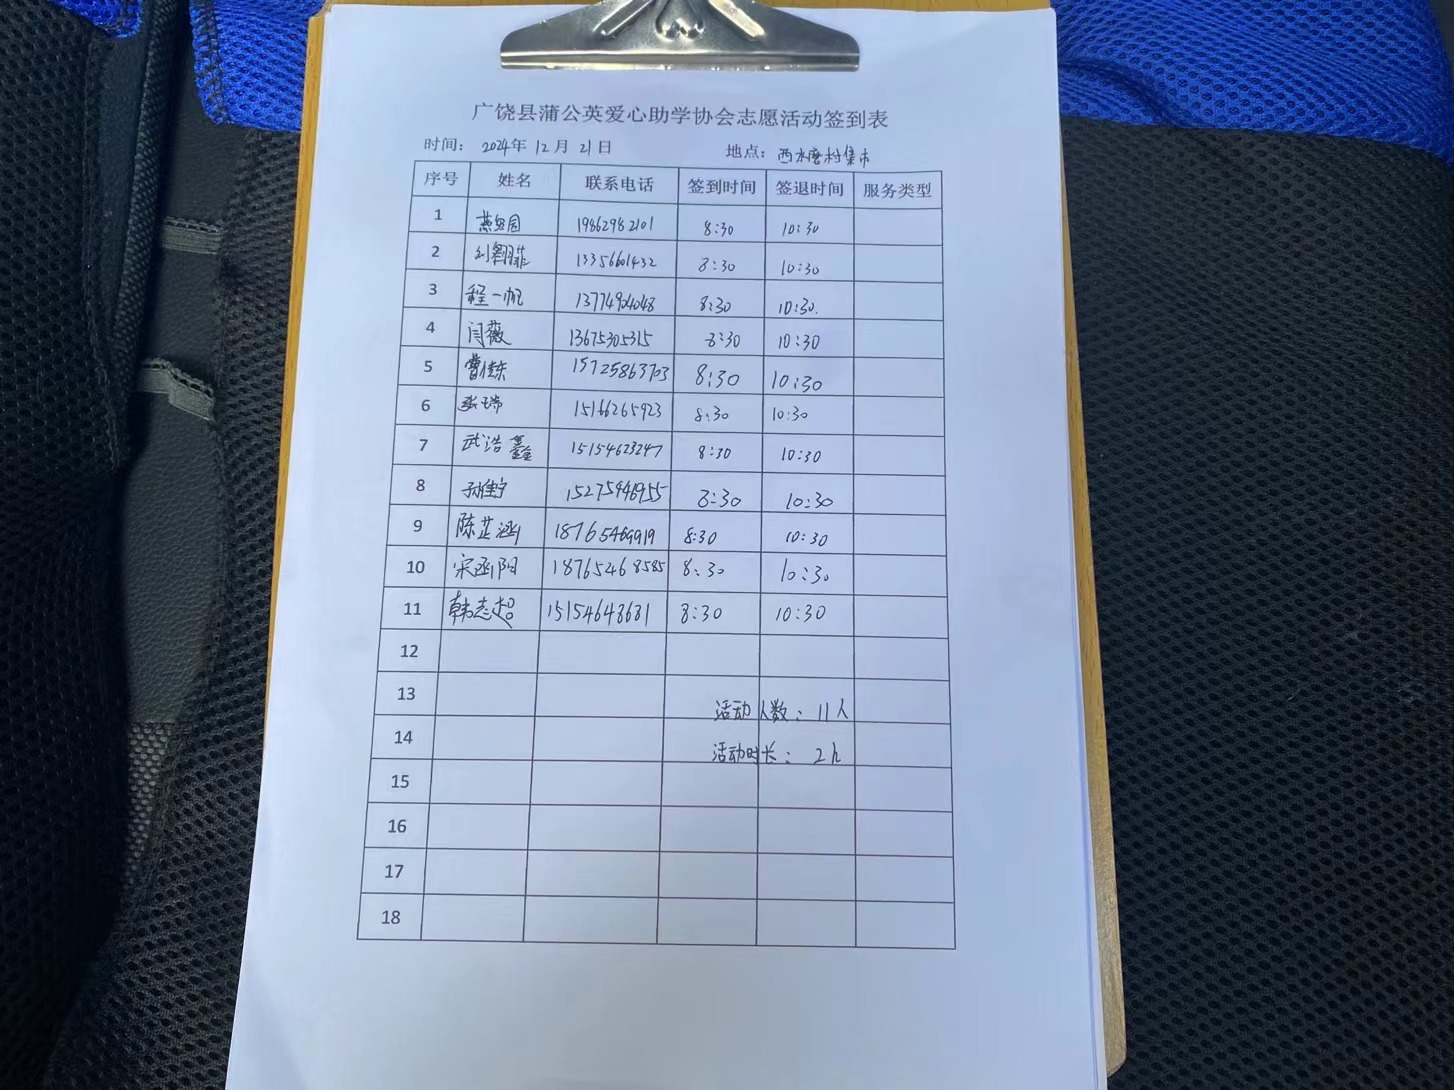 广饶县蒲公英爱心助学协会志愿活动签到表
时间: 2024年 12月 21日 地点: 西水磨村集市
序号 姓名 联系电话 签到时间 签退时间 服务类型
1 19862982101 8:30 10:30
2 刘翱菲 13356601432 8:30 10:30
3 程一帆 13774904048 8:30 10:30.
4 闫薇 13675305315 8:30 10:30
5 曹佳乐 15725863703 8:30 10:30
6 张瑞 15166265923 8:30 10:30
7 武浩鑫 15154623247 8:30 10:30
8 孙佳宁 15275446955 8:30 10:30
9 陈芷涵 8:30 10:30
10 宋函阳 18765468585 8:30 10:30
11 韩志超 15154643631 8:30 10:30
12
13 活动人数: 11人
14 活动时长: 2h
15
16
17
18